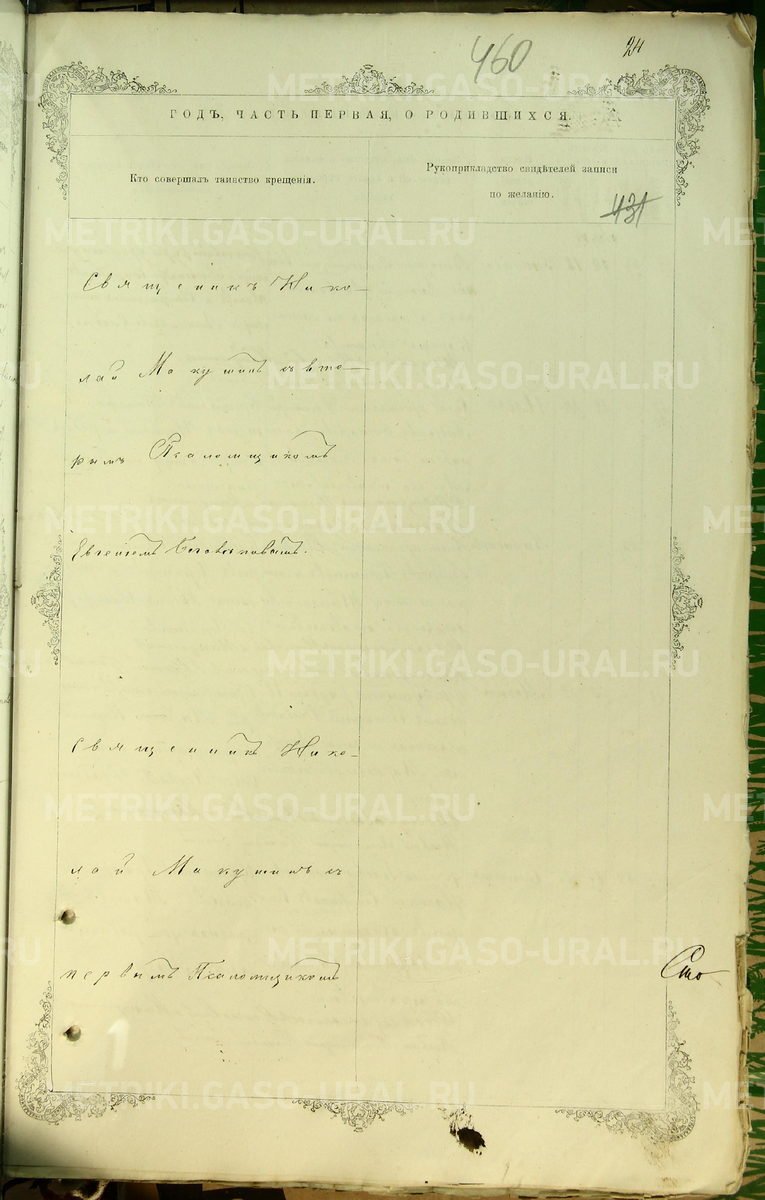 460
24
ГОДЪ, ЧАСТЬ ПЕРВАЯ, О РОДИВШИХСЯ.
Кто совершалъ таинство крещенія.
Рукоприкладство свидѣтелей записи
по желанію.
431
Священникъ Нико-
лай Макушинъ съ вто-
рымъ Псаломщикомъ
Евгеніемъ
Священникъ Нико-
лай Макушинъ съ
первымъ Псаломщикомъ
Сто
1
METRIKI.GASO-URAL.RU
METRIKI.GASO-URAL.RU
METRIKI.GASO-URAL.RU
METRIKI.GASO-URAL.RU
METRIKI.GASO-URAL.RU
METRIKI.GASO-URAL.RU
METRIKI.GASO-URAL.RU
METRIKI.GASO-URAL.RU